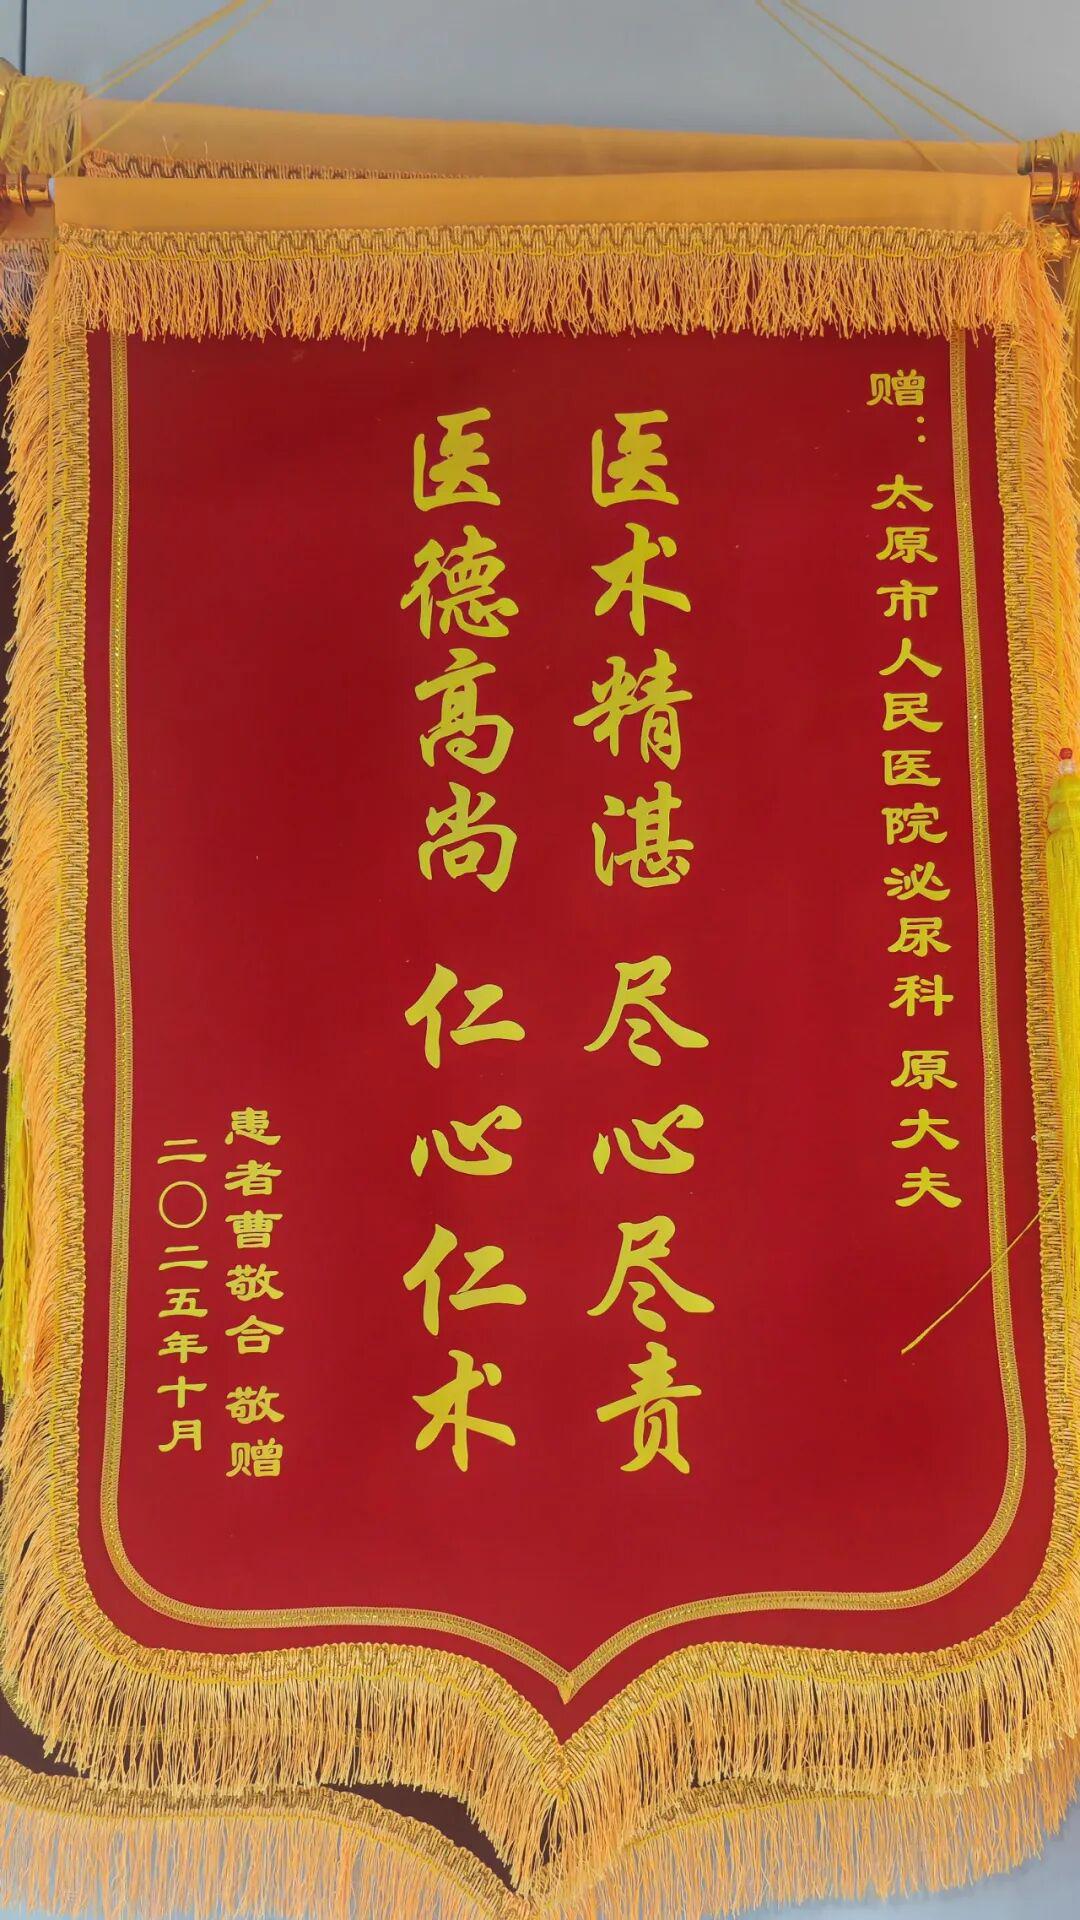 赠：太原市人民医院泌尿科 原大夫
医术精湛 尽心尽责
医德高尚 仁心仁术
患者曹敬合 敬赠
二〇二五年十月